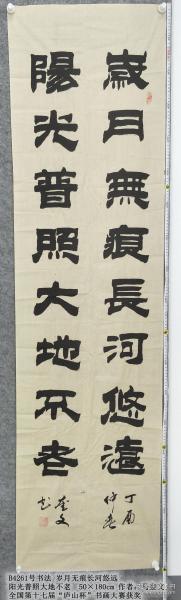 歲月無痕長河悠遠
陽光普照大地不老
丁酉
仲春
奎文
书
B4261号书法 岁月无痕长河悠远
阳光普照大地不老 50×180cm 作者
全国第十七届“庐山杯”书画大赛获奖